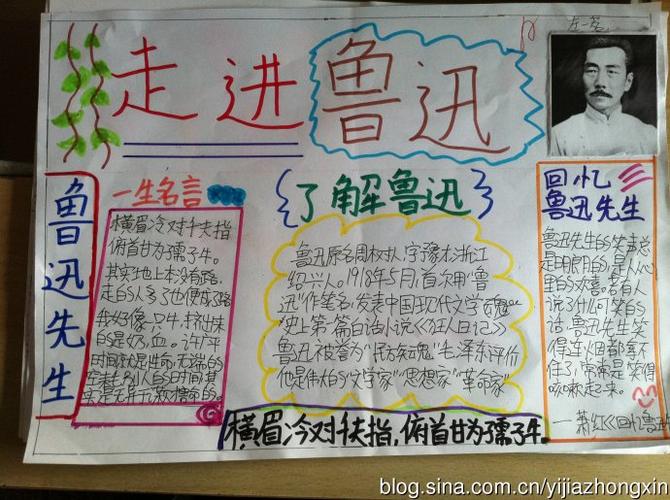 走进鲁迅
鲁迅先生
一生名言
横眉冷对千夫指
俯首甘为孺子牛。
其实地上本没有路,
走的人多了也便成了路
我好像一只牛,挤出来
的是奶,血。
时间就是生命,无端的
空耗别人的时间,其
实是无异于谋财害命的。
了解鲁迅
鲁迅原名周树人,字豫才,浙江
绍兴人。1918年5月,首次用“鲁
迅”作笔名,发表中国现代文学
史上第一篇白话小说《狂人日记》
鲁迅被誉为“民族魂”毛泽东评价
他是伟大的“文学家”“思想家”“革命家”
回忆
鲁迅先生
鲁迅先生的笑声总
是明朗的,是从心
里的欢喜。若有人
说了什么可笑的
话,鲁迅先生笑
得连烟都拿不
住了,常常是笑得
咳嗽起来。
—萧红《回忆鲁迅
横眉冷对千夫指,俯首甘为孺子牛。
blog.sina.com.cn/yijiazhongxin